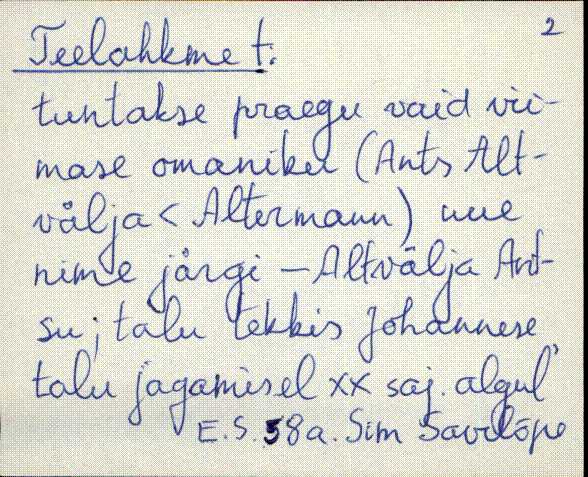 2
Teelahkme t:
tuntakse praegu vaid vii-
mase omaniku (Ants Alt-
välja < Altermann) uue
nime järgi – Altvälja Ant-
su; talu tekkis Johannese
talu jagamisel XX saj. algul
E.S. 58a. Sim Savelõpe